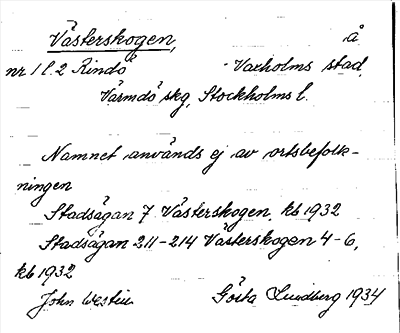 Västerskogen, å
nr 1 l. 2 Rindö Vaxholms stad,
Värmdö skg, Stockholms l.
Namnet används ej av ortsbefolk-
ningen
Stadsägan 7 Västerskogen, kb 1932
Stadsägan 211-214 Västerskogen 4-6,
kb 1932
John Westin Gösta Lundberg 1934